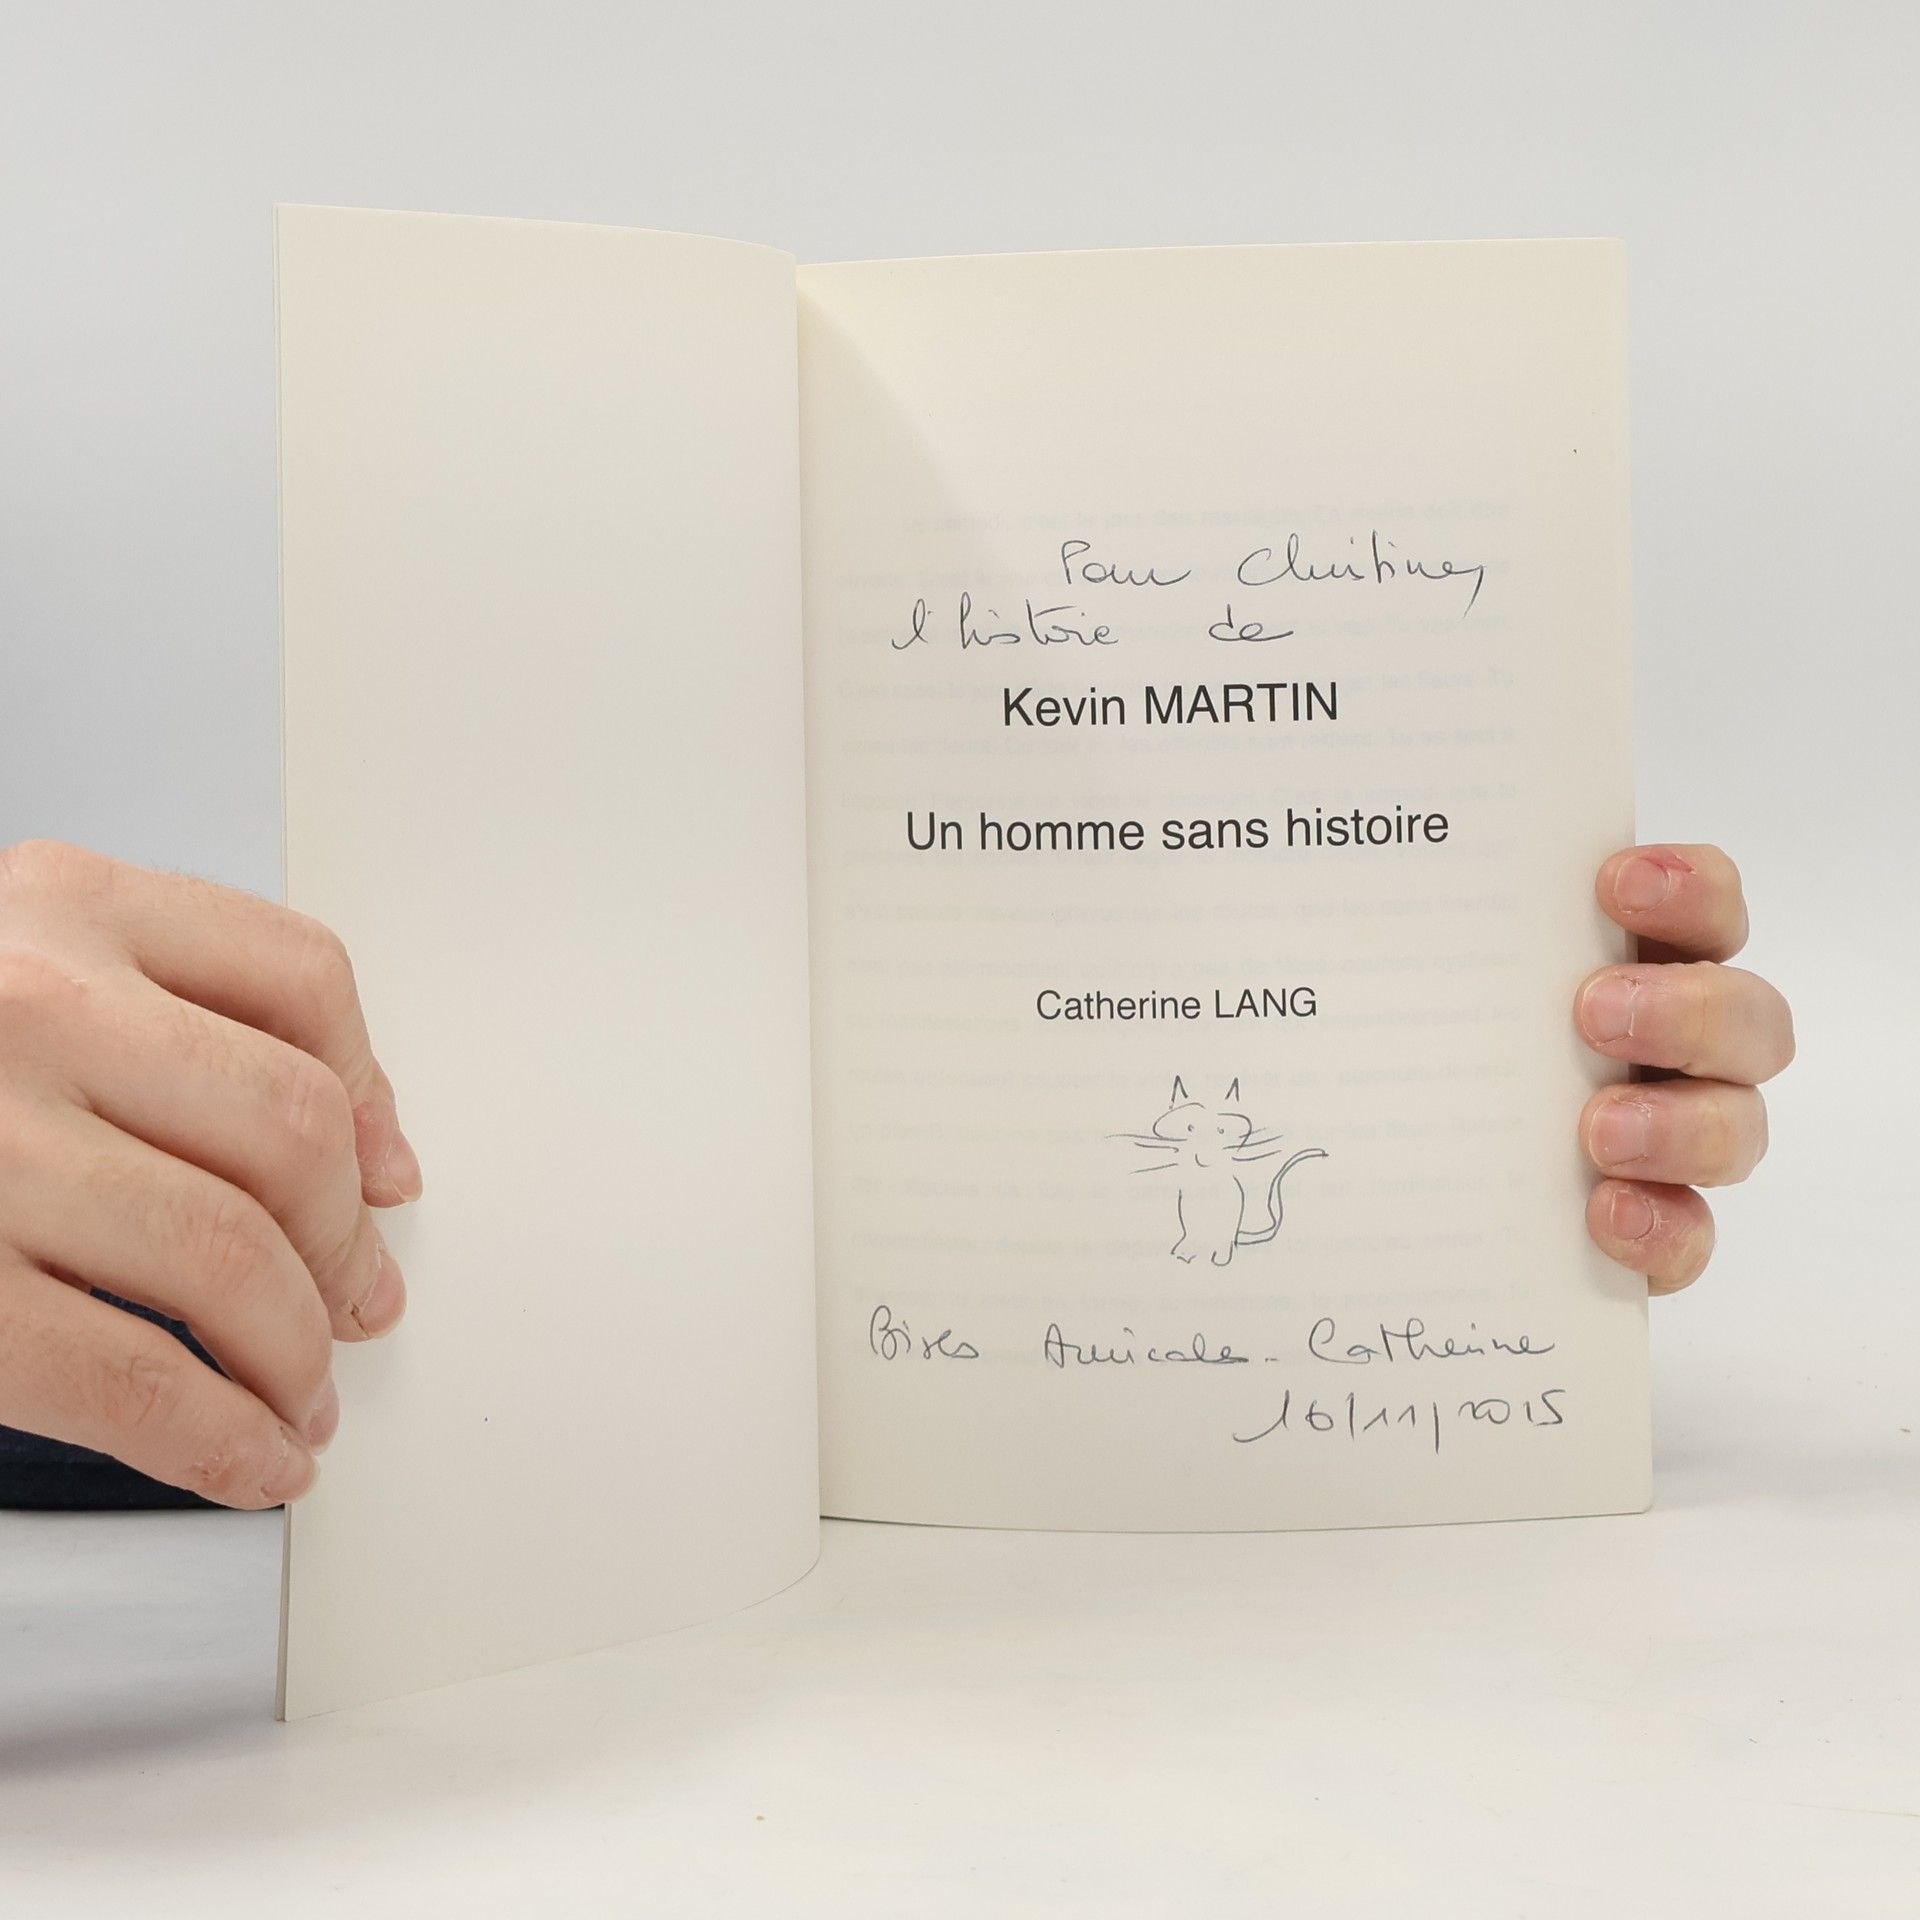 Pour Christine,
l'histoire de
Kevin MARTIN
Un homme sans histoire
Catherine LANG
Bises Amicales - Catherine
16/11/2015